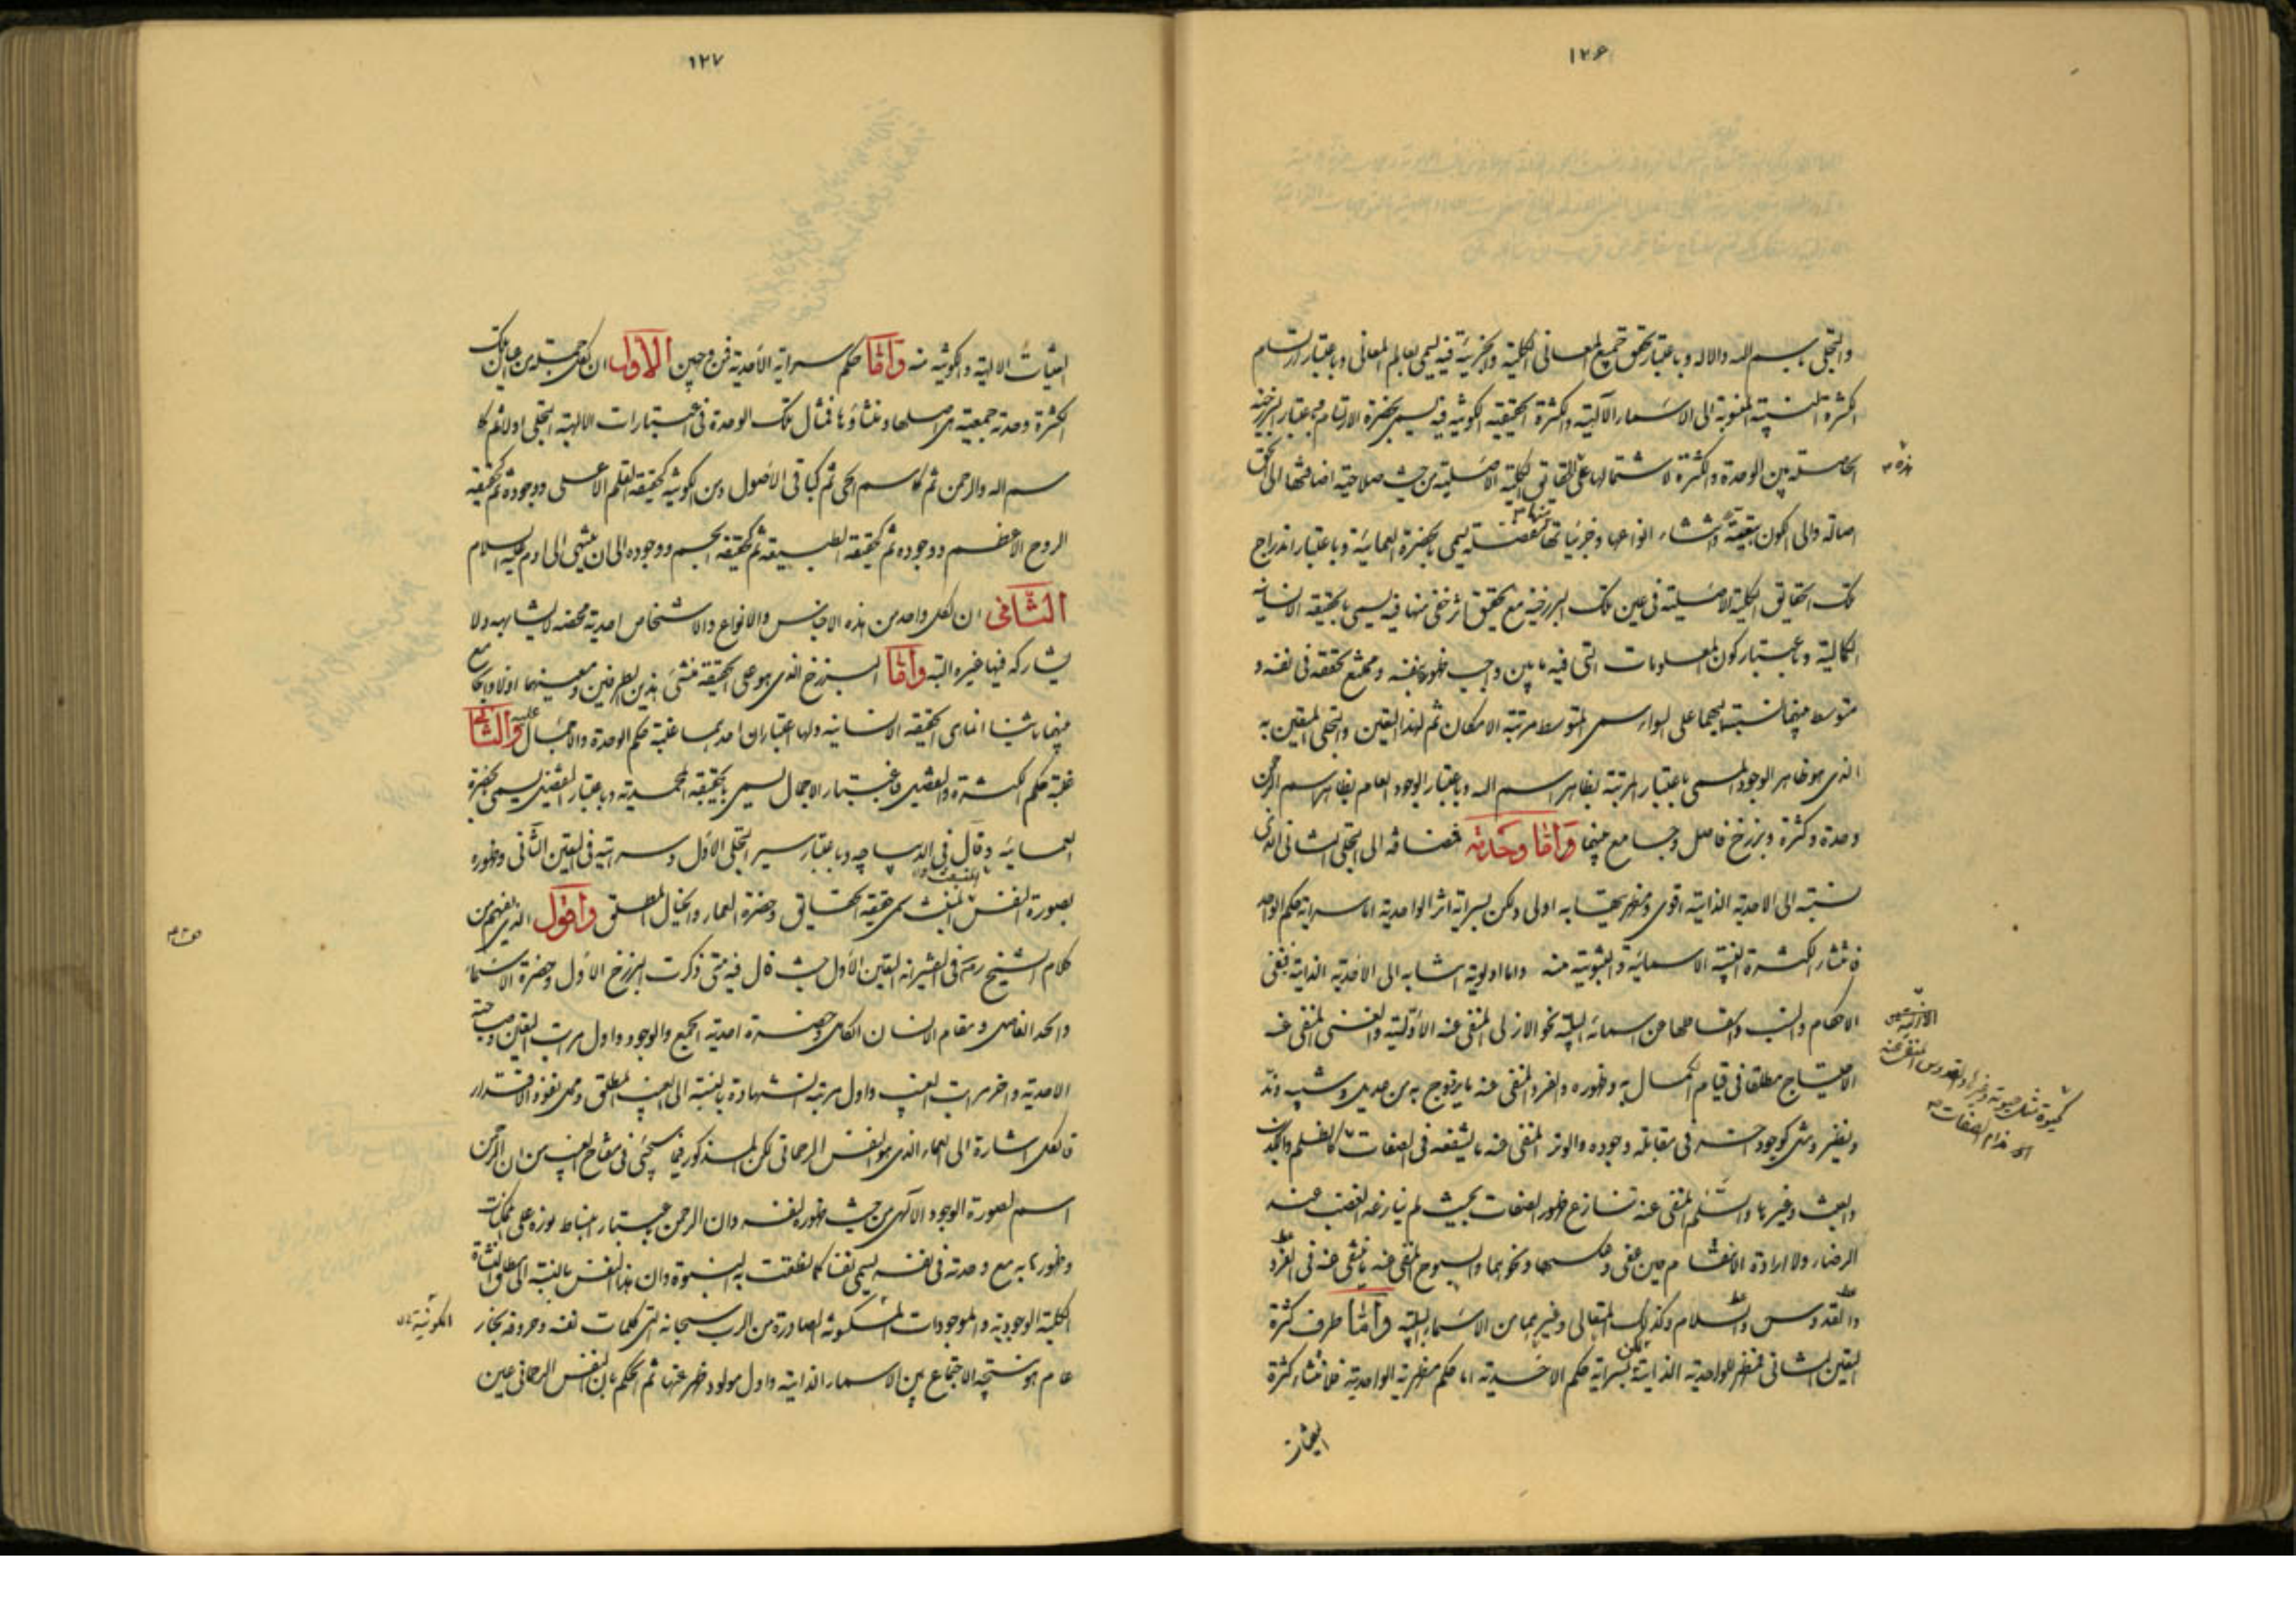 ١٢۶
والتجلى باسم الله والاله وباعتبار تحقق جميع المعانى الكلية والجزئية فيه يسمى بعالم المعانى وباعتبار ارتسام
الكثرة النسبية المنسوبة الى الاسماء الآلهية والكثرة الحقيقية الكونية فيه يسمى بحضرة الارتسام وباعتبار البرزخية
الحاصلة بين الوحدة والكثرة لاشتمالها على الحقايق الكلية الاصلية من حيث صلاحية اضافتها الى الحق
هذه
اصالة والى الكون بتبعية وانتشاء انواعها وجزئياتها مفصلة يسمى بالحضرة العمائية وباعتبار اندراج
تلك الحقايق الكلية الاصلية فى عين تلك البرزخية مع تحقق اثر خفى منها فيه يسمى بالحقيقة الانسانية
الكمالية وباعتبار كون المعلومات التى فيه ما بين واجب ظهوره بنفسه وممتنع تحققه فى نفسه و
متوسط بينهما نسبته اليهما على السواء سمى المتوسط مرتبة الامكان ثم لهذا التعين والتجلى المتعين به
الذى هو ظاهر الوجود المسمى باعتبار المرتبة بظاهر اسم الله وباعتبار الوجود العام بظاهر اسم الرحمن
وحدة وكثرة وبرزخ فاصل وجامع بينهما واما وحدته فمضافة الى التجلى الثانى الذى
نسبته الى الاحدية الذاتية اقوى ومظهريته به اولى ولكن بسراية اثر الواحدية اما سراية حكم الواحد
فانتشاء الكثرة النسبية الاسمائية والثبوتية منه واما اولوية انتسابه الى الاحدية الذاتية فنفى
الاحكام والنسب واسقاطها من اسمائه السلبية نحو الازلى المنتفى عنه الأولية والغنى المنتفى عنه
الاحتياج مطلقا فى قيام الكمال به وظهوره والفرد المنتفى عنه ما يزدوج به من عديل وشبيه وند
ونظير ومثل كوجود اخر فى مقابلة وجوده والوتر المنتفى عنه ما يشفعه فى الصفات كالظلم والحدث
والعبث وغيرها والسلم المنتفى عنه تنازع ظهور الصفات بحيث لم ينازعه الغضب عند
الرضاء ولا ارادة الانتقام حين عفى وعكسهما ونحوهما والسبوح المنتفى عنه ما ينتفى عنه فى الفرد
والقدوس والسلام وكذلك المتعالى وغيرهما من الاسماء السلبية واما طرف كثرة
التعين الثانى فمظهر للواحدية الذاتية لكن بسراية حكم الاحدية اما حكم مظهرية الواحدية فانتشاء كثرة
التعينات
١٢٧
التعينات الالهية والكونية منه واما حكم سراية الأحدية فمن وجهين الأول ان لكل جملة من هاتيك
الكثرة وحدة جمعية هى اصلها ومنشاؤها فمثال تلك الوحدة فى اعتبارات الالهية التجلى اولا ثم كا
سم الله والرحمن ثم كاسم الحى ثم كباقى الأصول ومن الكونية كحقيقة القلم الاعلى ووجوده ثم كحقيقة
الروح الاعظم ووجوده ثم كحقيقة الطبيعة ثم كحقيقة الجسم ووجوده الى ان ينتهى الى ادم عليه السلام
الثانى ان لكل واحد من هذه الاجناس والانواع والاشخاص احدية مختصة لا يشابهه ولا
يشاركه فيها غيره البتة واما البرزخ الذى هو على الحقيقة منشئ هذين الطرفين ومعينهما اولا والجامع
بينهما ثانيا انما هى الحقيقة الانسانية ولها اعتباران احدهما غلبة حكم الوحدة والاجمال عليه والثانى
غلبة حكم الكثرة والتفصيل فباعتبار الاجمال يسمى بالحقيقة المحمدية وباعتبار التفصيل يسمى بحضرة
العمائية وقال فى الديباجه وباعتبار سير التجلى الأول وسرايته فى التعين الثانى وظهوره
بصورة النفس المنبث سمى حقيقة الحقايق وحضرة العماء والخيال المطلق واقول الذى يفهم من
كلام الشيخ رضه فى التفسير انه التعين الأول حيث قال فيه متى ذكرت البرزخ الأول وحضرة الاسماء
والحد الفاصل ومقام الانسان الكامل وحضرة احدية الجمع والوجود واول مراتب التعين وصاحبة
الاحدية واخر مراتب الغيب واول مرتبة الشهادة بالنسبة الى الغيب المطلق ومحل نفوذ الاقتدار
فالكل اشارة الى العماء الذى هو النفس الرحمانى لكن المذكور فيما سيجئ فى مفتاح الغيب من ان الرحمن
اسم لصورة الوجود الآلهى من حيث ظهوره لنفسه وان الرحمن باعتبار انبساط نوره على الممكنات
وظهورها به مع وحدته فى نفسه يسمى نفسا كما نطقت به النبوة وان هذا النفس بالنسبة الى مطلق النشأة
الكلية الوجودية والموجودات المسكونة الصادرة من الرب سبحانه التى كلمات نفسه وحروفه بخار
الكونية
عام هو نتيجة الاجتماع بين الاسماء الذاتية واول مولود ظهر عنها ثم الحكم بان النفس الرحمانى عين